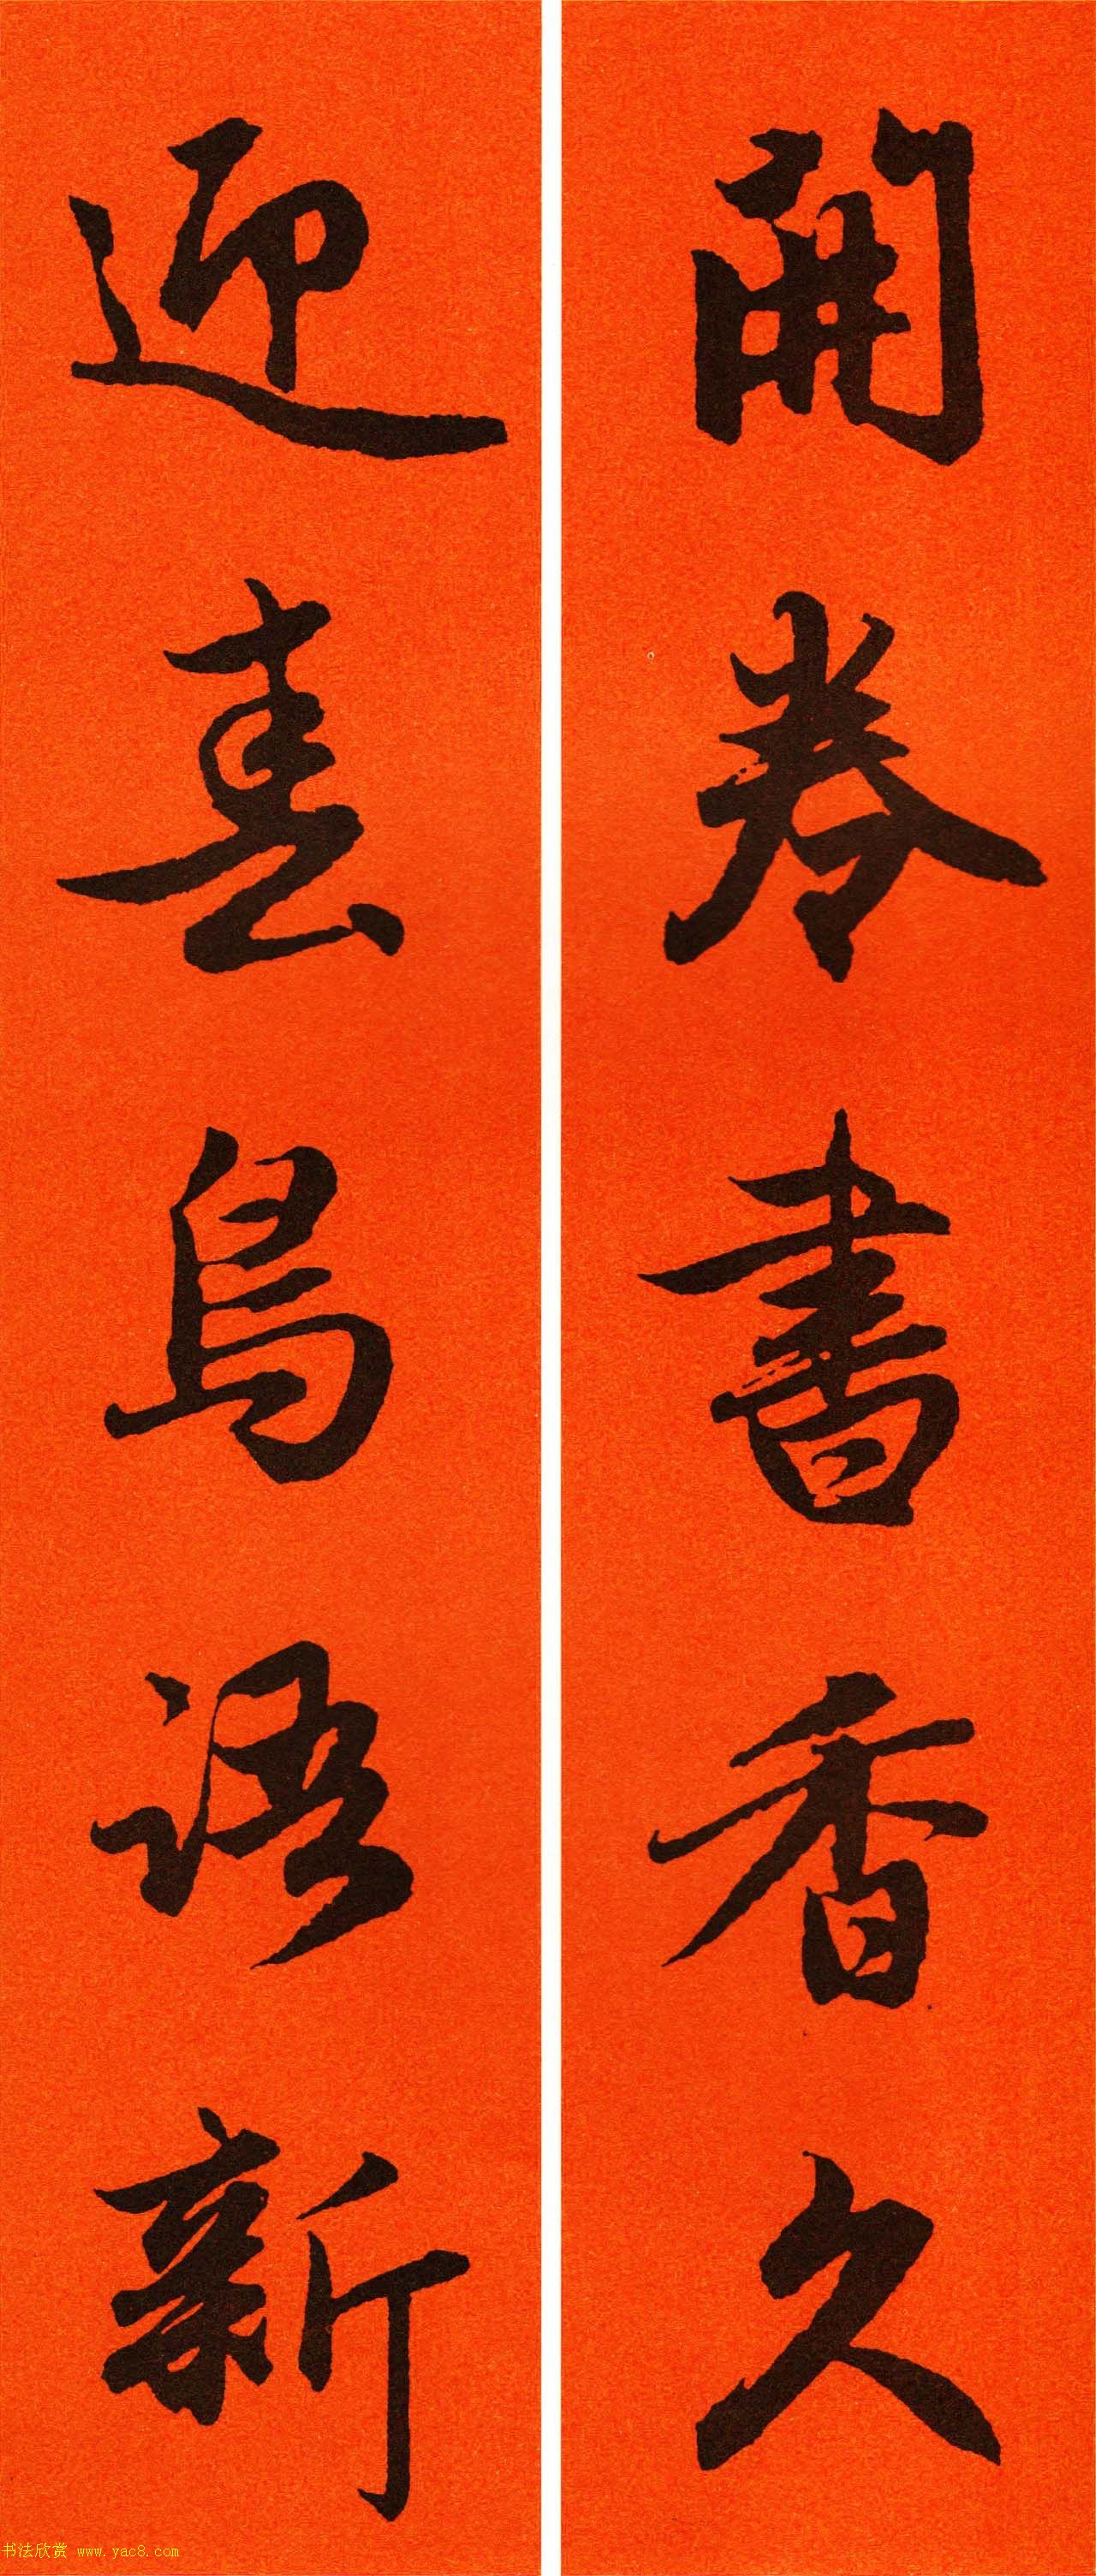 開卷書香久
迎春鳥語新
书法欣赏 www.yac8.com